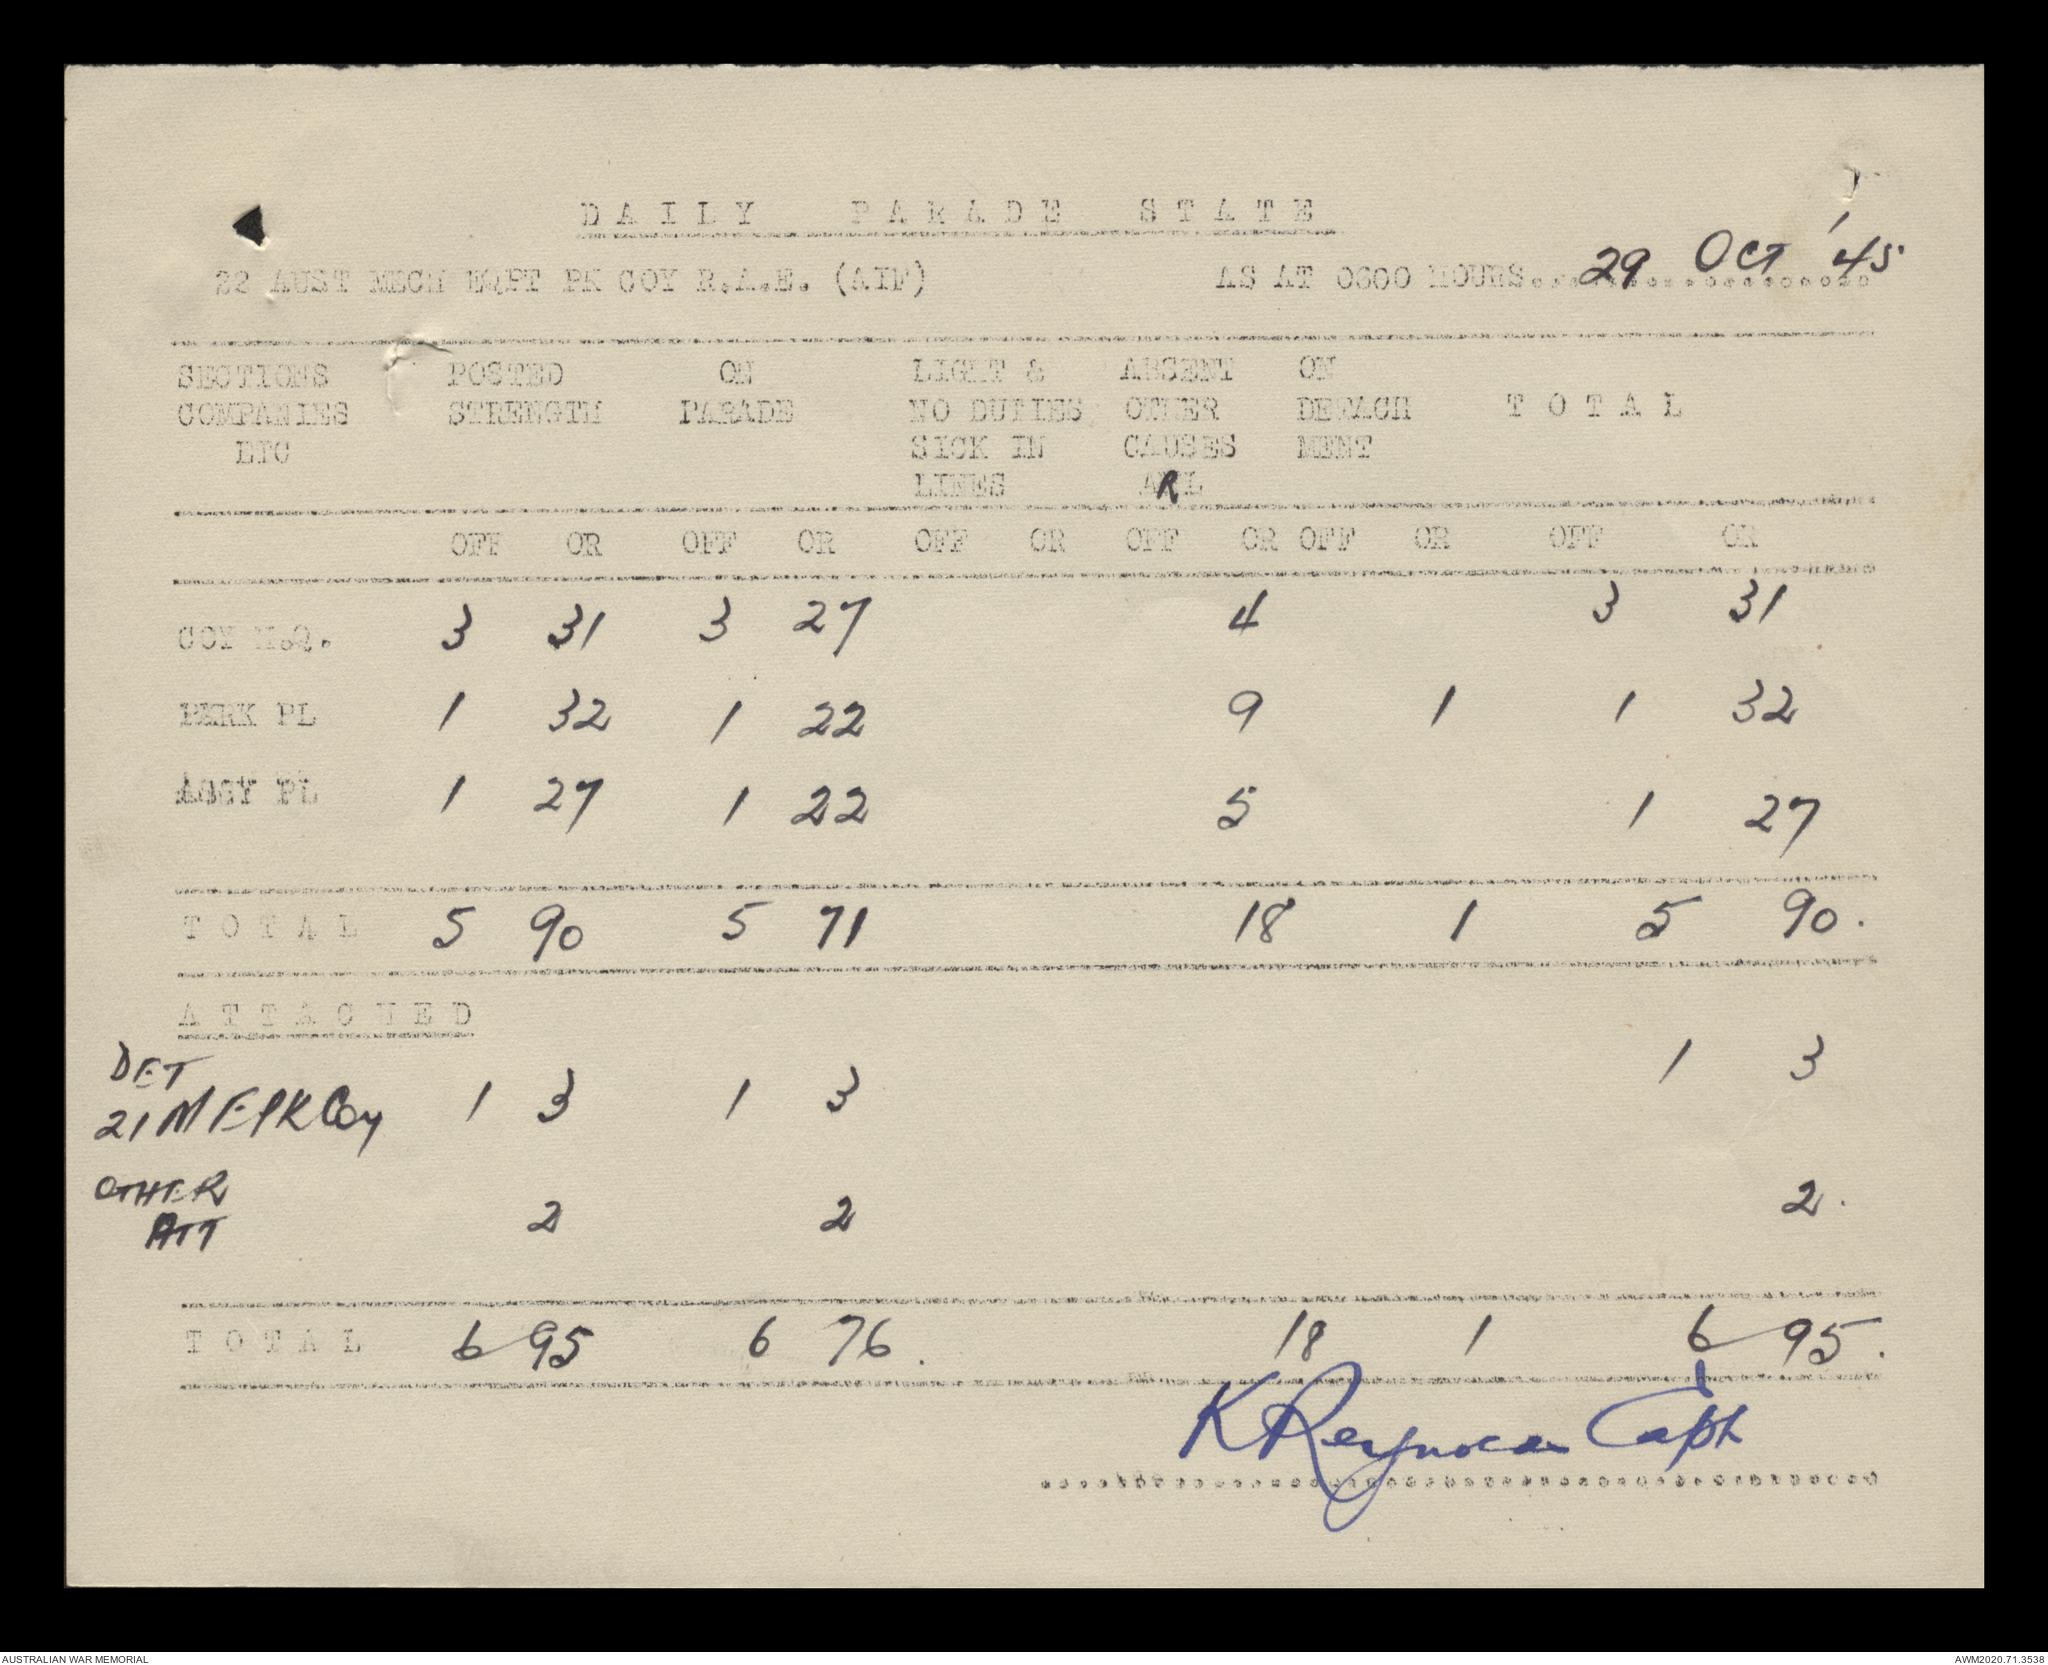 DAILY PARADE STATE
22 AUST MECH EQPT PK COY R.A.E. (AIF) AS AT 0600 HOURS 29 OCT '45
SECTIONS POSTED ON LIGHT & ABSENT ON
COMPANIES STRENGTH PARADE NO DUTIES OTHER DETACH TOTAL
ETC SICK IN CAUSES MENT
LINES
OFF OR OFF OR OFF OR OFF OR OFF OR OFF OR
COY H.Q. 3 31 3 27 4 3 31
PARK PL 1 32 1 22 9 1 1 32
PL 1 27 1 22 5 1 27
TOTAL 5 90 5 71 18 1 5 90.
ATTACHED
DET
21 M E PK Coy 1 3 1 3 1 3
OTHER
ATT 2 2 2.
TOTAL 6 95 6 76. 18 1 6 95.
K Capt
AUSTRALIAN WAR MEMORIAL AWM2020.71.3538